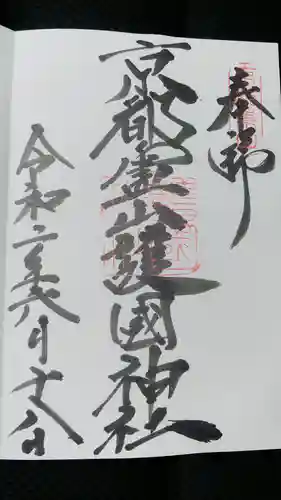 奉拝
京都霊山護國神社
令和二年八月十六日